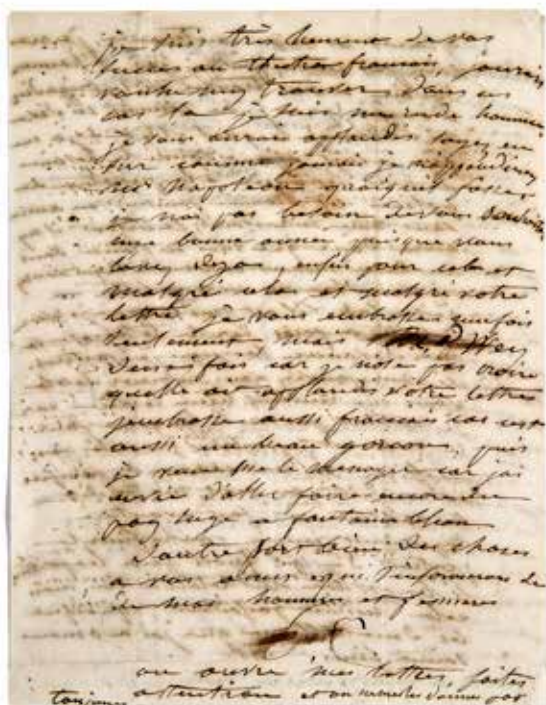 je suis très heureux de vos
succès au theatre francais, j'aurais
voulu my trouver dans ce
cas la je suis un rude homme
je vous aurais applaudis soyez en
sur comme jamais je napplaudirez
ni Napoleon quoique fasse
je nai pas besoin de vous souhaiter
une bonne année puisque vous
lavez deja, enfin pour cela et
malgré cela et malgré votre
lettre je vous embrasse une fois
seulement, mais Mme Wey
deux fois car je nose pas croire
quelle ait applaudis votre lettre
jembrasse aussi francais car cest
aussi un beau garcons, puis
je veux me le menager car jai
envie daller faire encore du
paysage a fontainebleau
Dautre part bien des choses
a vos amis qui sinforment de
de moi hommes et femmes
on ouvre mes lettres, faites
attention et on ne me les donne pas
toujours